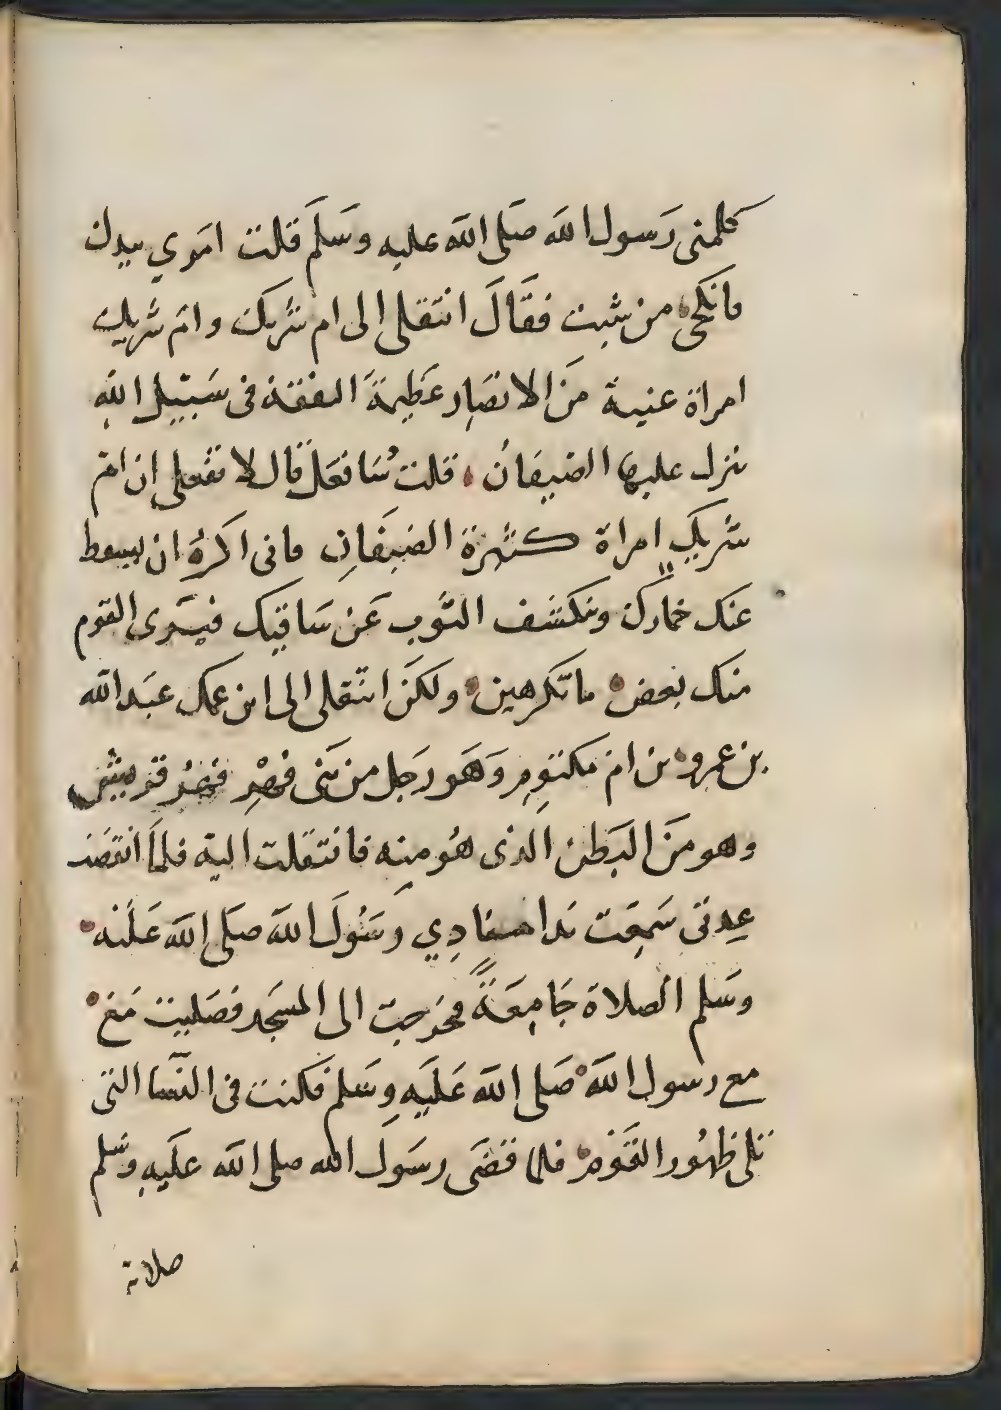 كلمنى رسول الله صلى الله عليه وسلم قلت امري بيدك
فانكحى من شيت فقال انتقلى الى ام شريك وام شريك
امراة غنية من الانصار عظيمة النفقة فى سبيل الله
ينزل عليها الضيفان قلت سافعل قال لا تفعلى ان ام
شريك امراة كثيرة الضيفان فانى اكره ان يسقط
عنك خمارك وينكشف الثوب عن ساقيك فيرى القوم
منك بعض ما تكرهين ولكن انتقلى الى ابن عمك عبد الله
بن عمرو بن ام مكتوم وهو رجل من بنى فهر فهر قريش
وهو من البطن الذى هو منه فانتقلت اليه فلما انقضت
عدتى سمعت ندا منادي رسول الله صلى الله عليه
وسلم الصلاة جامعة فخرجت الى المسجد فصليت مع
مع رسول الله صلى الله عليه وسلم فكنت فى النسا التى
تلى ظهور القوم فلما قضى رسول الله صلى الله عليه وسلم
صلاته